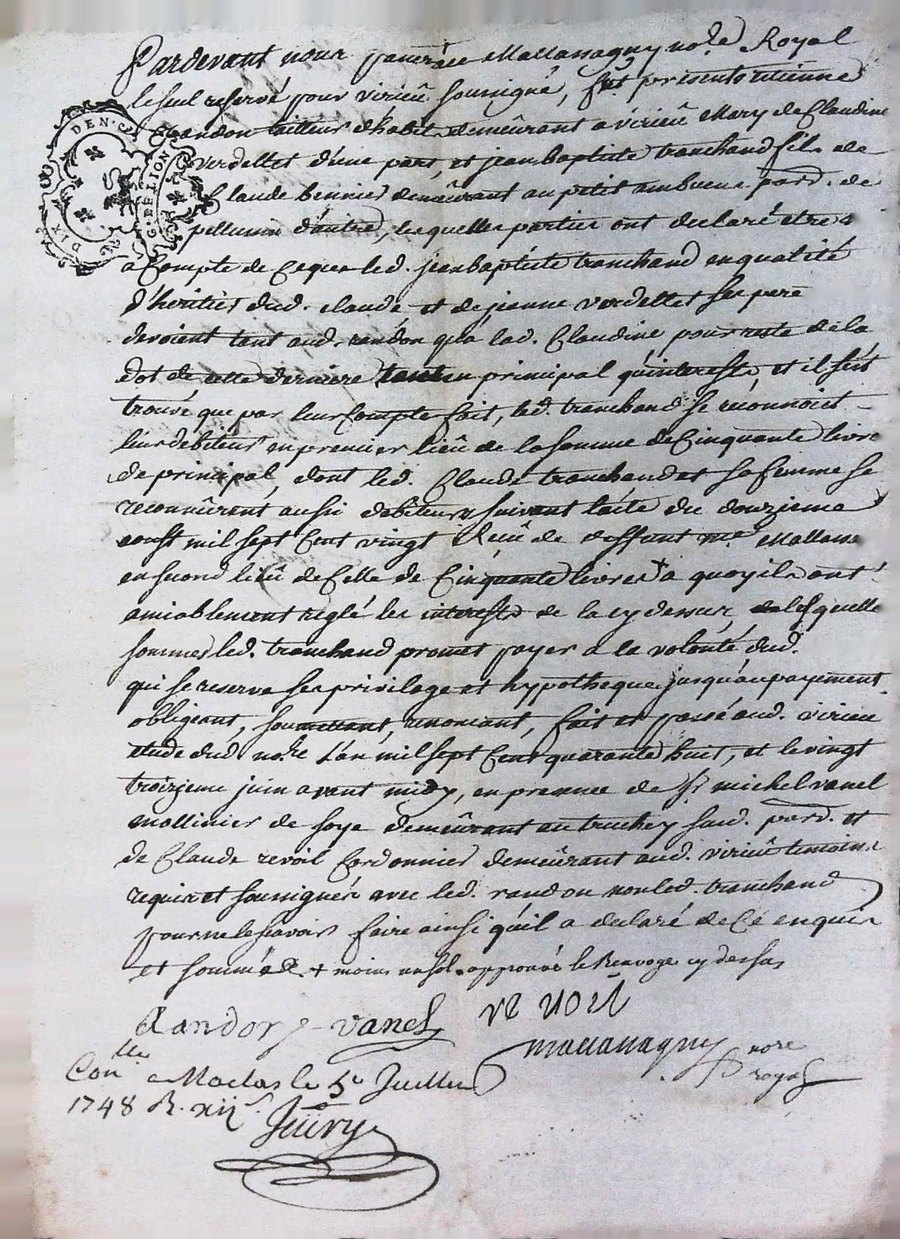 Pardevant nous pancrasse Mallassagny no.re Royal
le seul reservé pour virieû soussigné, fut present etienne
Randon tailleur d'habit demeûrant a virieû Mary de Claudine
verdellet d'une part, et jean baptiste tranchand fils de
Claude demeûrant au petit ambuent par.d de
pellussin d'autre, lesquelles parties ont declaré etre
a Compte de Ceque led. jean baptiste tranchand en qualité
d'heritier dud. claude et de jeanne verdellet ses pere
devoient tant aud. randon qu'a lad. Claudine pour reste de la
dot de cette derniere tant en principal qu'interests, et il s'est
trouvé que par leur Compte fait, led. tranchand se reconnoit
leur debiteur en premier lieû de la somme de Cinquante livres
de principal, dont led. Claude tranchand et sa femme se
reconnûrent aussi debiteurs suivant l'acte du douzieme
aoust mil sept Cent vingt Reçû de deffunt me. Mallassa
en second lieû de Celle de Cinquante livres + a quoy ils ont
amiablement reglé les interests de la cy dessus, lesquelles
sommes led. tranchand promet payer a la volonté dud.
qui se reserve ses privilage et hypotheque jusqu'au payement
obligeant, soumettant, renonciant, fait et passé aud. virieu
etude dud. no.re L'an mil sept Cent quarante huit, et le vingt
troizieme juin avant midy, en presence de Sr. michel vanel
mollinier de soye demeûrant au truchey susd. par.d et
de Claude revoil Cordonnier demeûrant aud. virieû temoins
requis et soussignés avec led. randon non led. tranchand
pour ne le sçavoir faire ainsi qu'il a declaré de Ce enquis
et sommé + moins un sol. approuvé le Renvoye cy dessus
Randon vanel revoil
mallassagny nore
royal
Con.lle a Maclas le 5e Juillet
1748 R. xijs.